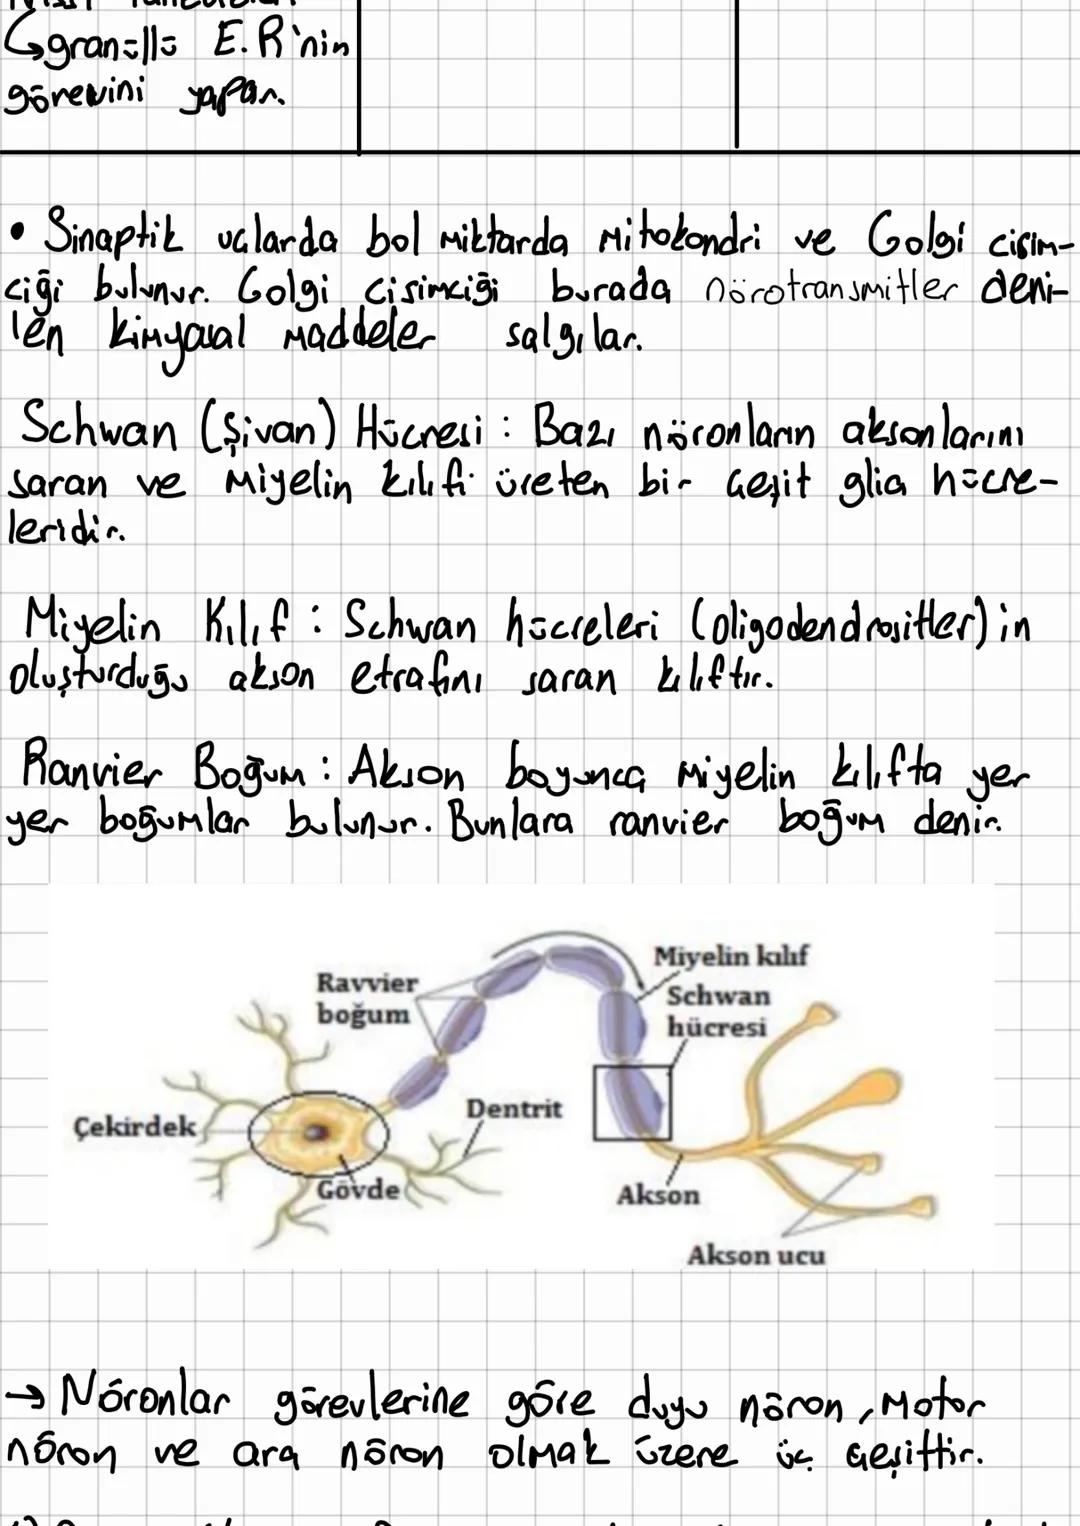 ↳granüllü E.R'nin
görevini yapar.
• Sinaptik uçlarda bol miktarda mitokondri ve Golgi cisim-
ciği bulunur. Golgi cisimciği burada nörotransmitler deni-
len kimyasal maddeler salgılar.
Schwan (Şivan) Hücresi : Bazı nöronların aksonlarını
saran ve miyelin kılıfı üreten bir çeşit glia hücre-
leridir.
Miyelin Kılıf : Schwan hücreleri (oligodendrositler)in
oluşturduğu akson etrafını saran kılıftır.
Ranvier Boğum : Akson boyunca miyelin kılıfta yer
yer boğumlar bulunur. Bunlara ranvier boğum denir.
Miyelin kılıf
Ravvier
boğum
Schwan
hücresi
Çekirdek
Dentrit
Gövde
Akson
Akson ucu
→ Nöronlar görevlerine göre duyu nöron, motor
nöron ve ara nöron olmak üzere üç çeşittir.